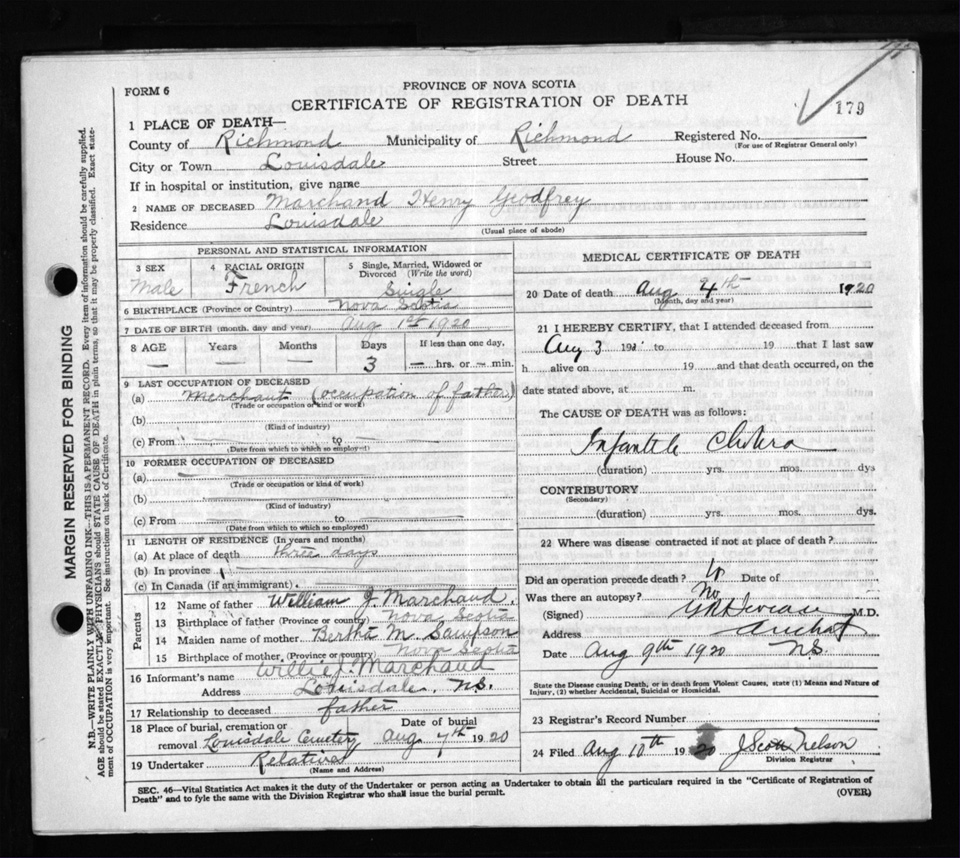 FORM 6
PROVINCE OF NOVA SCOTIA
CERTIFICATE OF REGISTRATION OF DEATH
179
1 PLACE OF DEATH—
County of Richmond Municipality of Richmond Registered No.
(For use of Registrar General only)
City or Town Louisdale Street House No.
If in hospital or institution, give name
2 NAME OF DECEASED Marchand Henry Godfrey
Residence Louisdale (Usual place of abode)
PERSONAL AND STATISTICAL INFORMATION
3 SEX 4 RACIAL ORIGIN 5 Single, Married, Widowed or Divorced (Write the word)
Male French Single
6 BIRTHPLACE (Province or Country) Nova Scotia
7 DATE OF BIRTH (month, day and year) Aug 1st 1920
8 AGE Years Months Days If less than one day,
— — 3 — hrs. or — min.
9 LAST OCCUPATION OF DECEASED
(a) Merchant (occupation of father)
(Trade or occupation or kind of work)
(b)
(Kind of industry)
(c) From to
(Date from which to which so employed)
10 FORMER OCCUPATION OF DECEASED
(a)
(Trade or occupation or kind of work)
(b)
(Kind of industry)
(c) From to
(Date from which to which so employed)
11 LENGTH OF RESIDENCE (In years and months)
(a) At place of death three days
(b) In province
(c) In Canada (if an immigrant)
Parents
12 Name of father William J. Marchand.
13 Birthplace of father (Province or country) Nova Scotia
14 Maiden name of mother Bertha M. Sampson
15 Birthplace of mother (Province or country) Nova Scotia
16 Informant's name Willie J. Marchand
Address Louisdale, N.S.
17 Relationship to deceased father
18 Place of burial, cremation or removal Louisdale Cemetery Date of burial Aug 7th 1920
19 Undertaker Relatives
(Name and Address)
MEDICAL CERTIFICATE OF DEATH
20 Date of death Aug 4th 1920
(Month, day and year)
21 I HEREBY CERTIFY, that I attended deceased from
Aug 3 19 to 19 that I last saw
h alive on 19 and that death occurred, on the
date stated above, at m.
The CAUSE OF DEATH was as follows:
Infantile Cholera
(duration) yrs. mos. dys
CONTRIBUTORY
(Secondary)
(duration) yrs. mos. dys.
22 Where was disease contracted if not at place of death?
Did an operation precede death? Date of
Was there an autopsy? No
(Signed) M.D.
Address Arichat
Date Aug 9th 1920 N.S.
State the Disease causing Death, or in death from Violent Causes, state (1) Means and Nature of
Injury, (2) whether Accidental, Suicidal or Homicidal.
23 Registrar's Record Number
24 Filed Aug 10th 1920 J Scott Nelson
Division Registrar
SEC. 46—Vital Statistics Act makes it the duty of the Undertaker or person acting as Undertaker to obtain all the particulars required in the "Certificate of Registration of
Death" and to fyle the same with the Division Registrar who shall issue the burial permit.
(OVER)
MARGIN RESERVED FOR BINDING
N.B.—WRITE PLAINLY WITH UNFADING INK—THIS IS A PERMANENT RECORD. Every item of information should be carefully supplied.
AGE should be stated EXACTLY. PHYSICIANS should STATE CAUSE OF DEATH in plain terms, so that it may be properly classified. Exact state-
ment of OCCUPATION is very important. See instructions on back of Certificate.